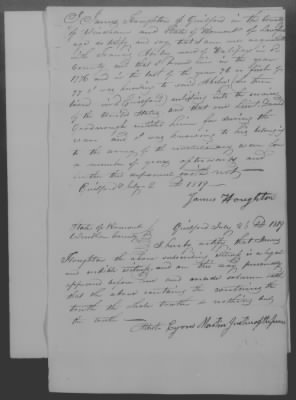 I James Houghton of Guilford in the County
of Windham and State of Vermont of lawful
age testify and say that I am now acquainted
with Samuel Nichols now of Halifax in sd
County and that I knew him in the year
1776 and in the last of the year 76 or first of
77 I was knowing to said Nichols who then
lived in Guilford enlisting into the service
of the United States and that one Lieut David
Goodnough enlisted him for during the
war and I was knowing to his belonging
to the army of the revolutionary war for
a number of years afterwards and
further this deponent saith not
Guilford July 2 1819
James Houghton
State of Vermont
Windham County
Guilford July 2 1819
I hereby certify that James
Houghton the above subscribing witness is a legal
and credible witness and on this day personally
appeared before me and made solemn oath
that the above contains the
truth the whole truth & nothing but
the truth
Attest Cyrus Martin Justice of the peace